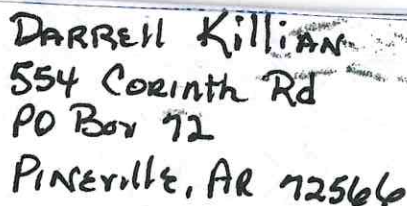 Darrell Killian
554 Corinth Rd
PO Box 72
Pineville, AR 72566